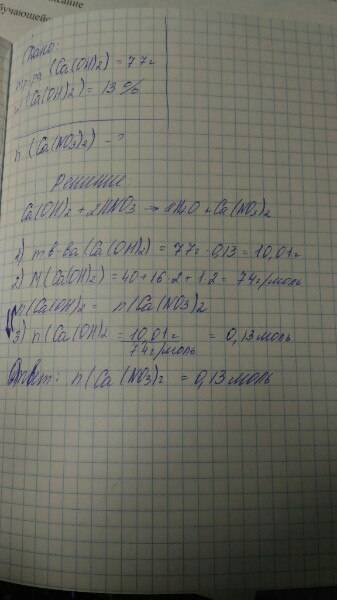 обучающей
Дано:
m р-ра (Ca(OH)2) = 77г
w (Ca(OH)2) = 13 %
n (Ca(NO3)2) - ?
Решение
Ca(OH)2 + 2HNO3 → 2H2O + Ca(NO3)2
1) m в-ва (Ca(OH)2) = 77г · 0,13 = 10,01г
2) M (Ca(OH)2) = 40 + 16·2 + 1·2 = 74г/моль
n(Ca(OH)2 = n(Ca(NO3)2
3) n (Ca(OH)2 = 10,01г / 74г/моль = 0,13моль
Ответ: n (Ca (NO3)2 = 0,13 моль